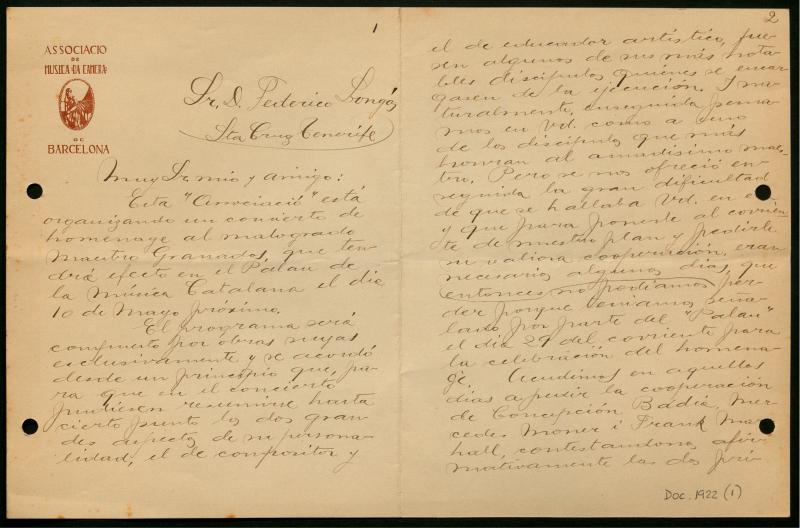 1
ASSOCIACIO
DE
MUSICA "DA CAMERA"
DE
BARCELONA
Sr. D. Federico Longás
Sta Cruz Tenerife
Muy Sr. mio y amigo:
Esta "Associació" está
organizando un concierto de
homenage al malogrado
Maestro Granados, que ten-
drá efecto en el Palau de
la Música Catalana el dia
10 de Mayo próximo.
El programa será
compuesto por obras suyas
exclusivamente y se acordó
desde un principio que, pa-
ra que en el concierto
pudiesen resumirse hasta
cierto punto los dos gran-
des aspectos de su persona-
lidad, el de compositor y
2
el de educador artístico, fue-
sen algunos de sus más nota-
bles discípulos quienes se encar-
gasen de la ejecución. Y na-
turalmente, enseguida pensa-
mos en Vd. como a uno
de los discípulos que más
honran al amadísimo maes-
tro. Pero se nos ofreció en-
seguida la gran dificultad
de que se hallaba Vd. en
y que para ponerle al corrien-
te de nuestro plan y pedirle
su valiosa cooperación, eran
necesarios algunos dias, que
entonces no podiamos per-
der porque teniamos seña-
lado por parte del "Palau"
el dia 29 del corriente para
la celebración del homena-
ge. Acudimos en aquellos
dias a pedir la cooperación
de Concepción Badía, Mer-
cedes Moner i Frank Mars-
hall, contestandonos afir-
mativamente las dos pri-
DOC. 1922 (1)